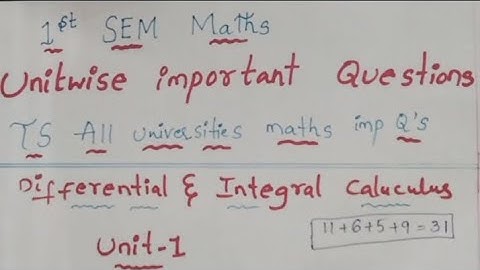 1st SEM Maths
Unitwise important Questions
TS All universities maths imp Q's
Differential & Integral Caluculus
Unit-1
11+6+5+9=31